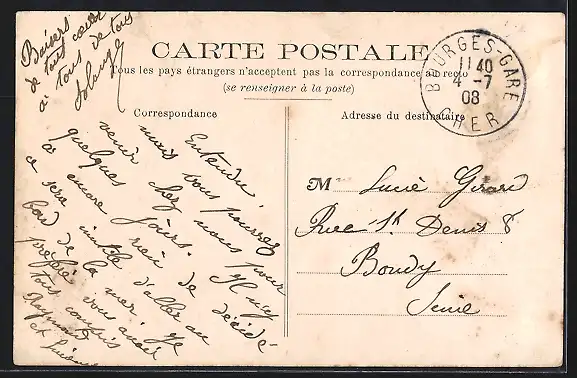 Baisers
de tout cœur
à tous de tous
Solange
CARTE POSTALE
Tous les pays étrangers n'acceptent pas la correspondance au recto
(se renseigner à la poste)
BOURGES-GARE
11 40
4 -7
08
CHER
Correspondance
Adresse du destinataire
Entendu,
mais vous pourrez
venir chez nous pour
quelques jours. Il n'y
a encore rien de décidé
ce sera inutile d'aller au
bord de la mer. Je
préfère vous avoir
tous compris
Raymond
et
M Lucie Girard
Rue St Denis 8
Bondy
Seine